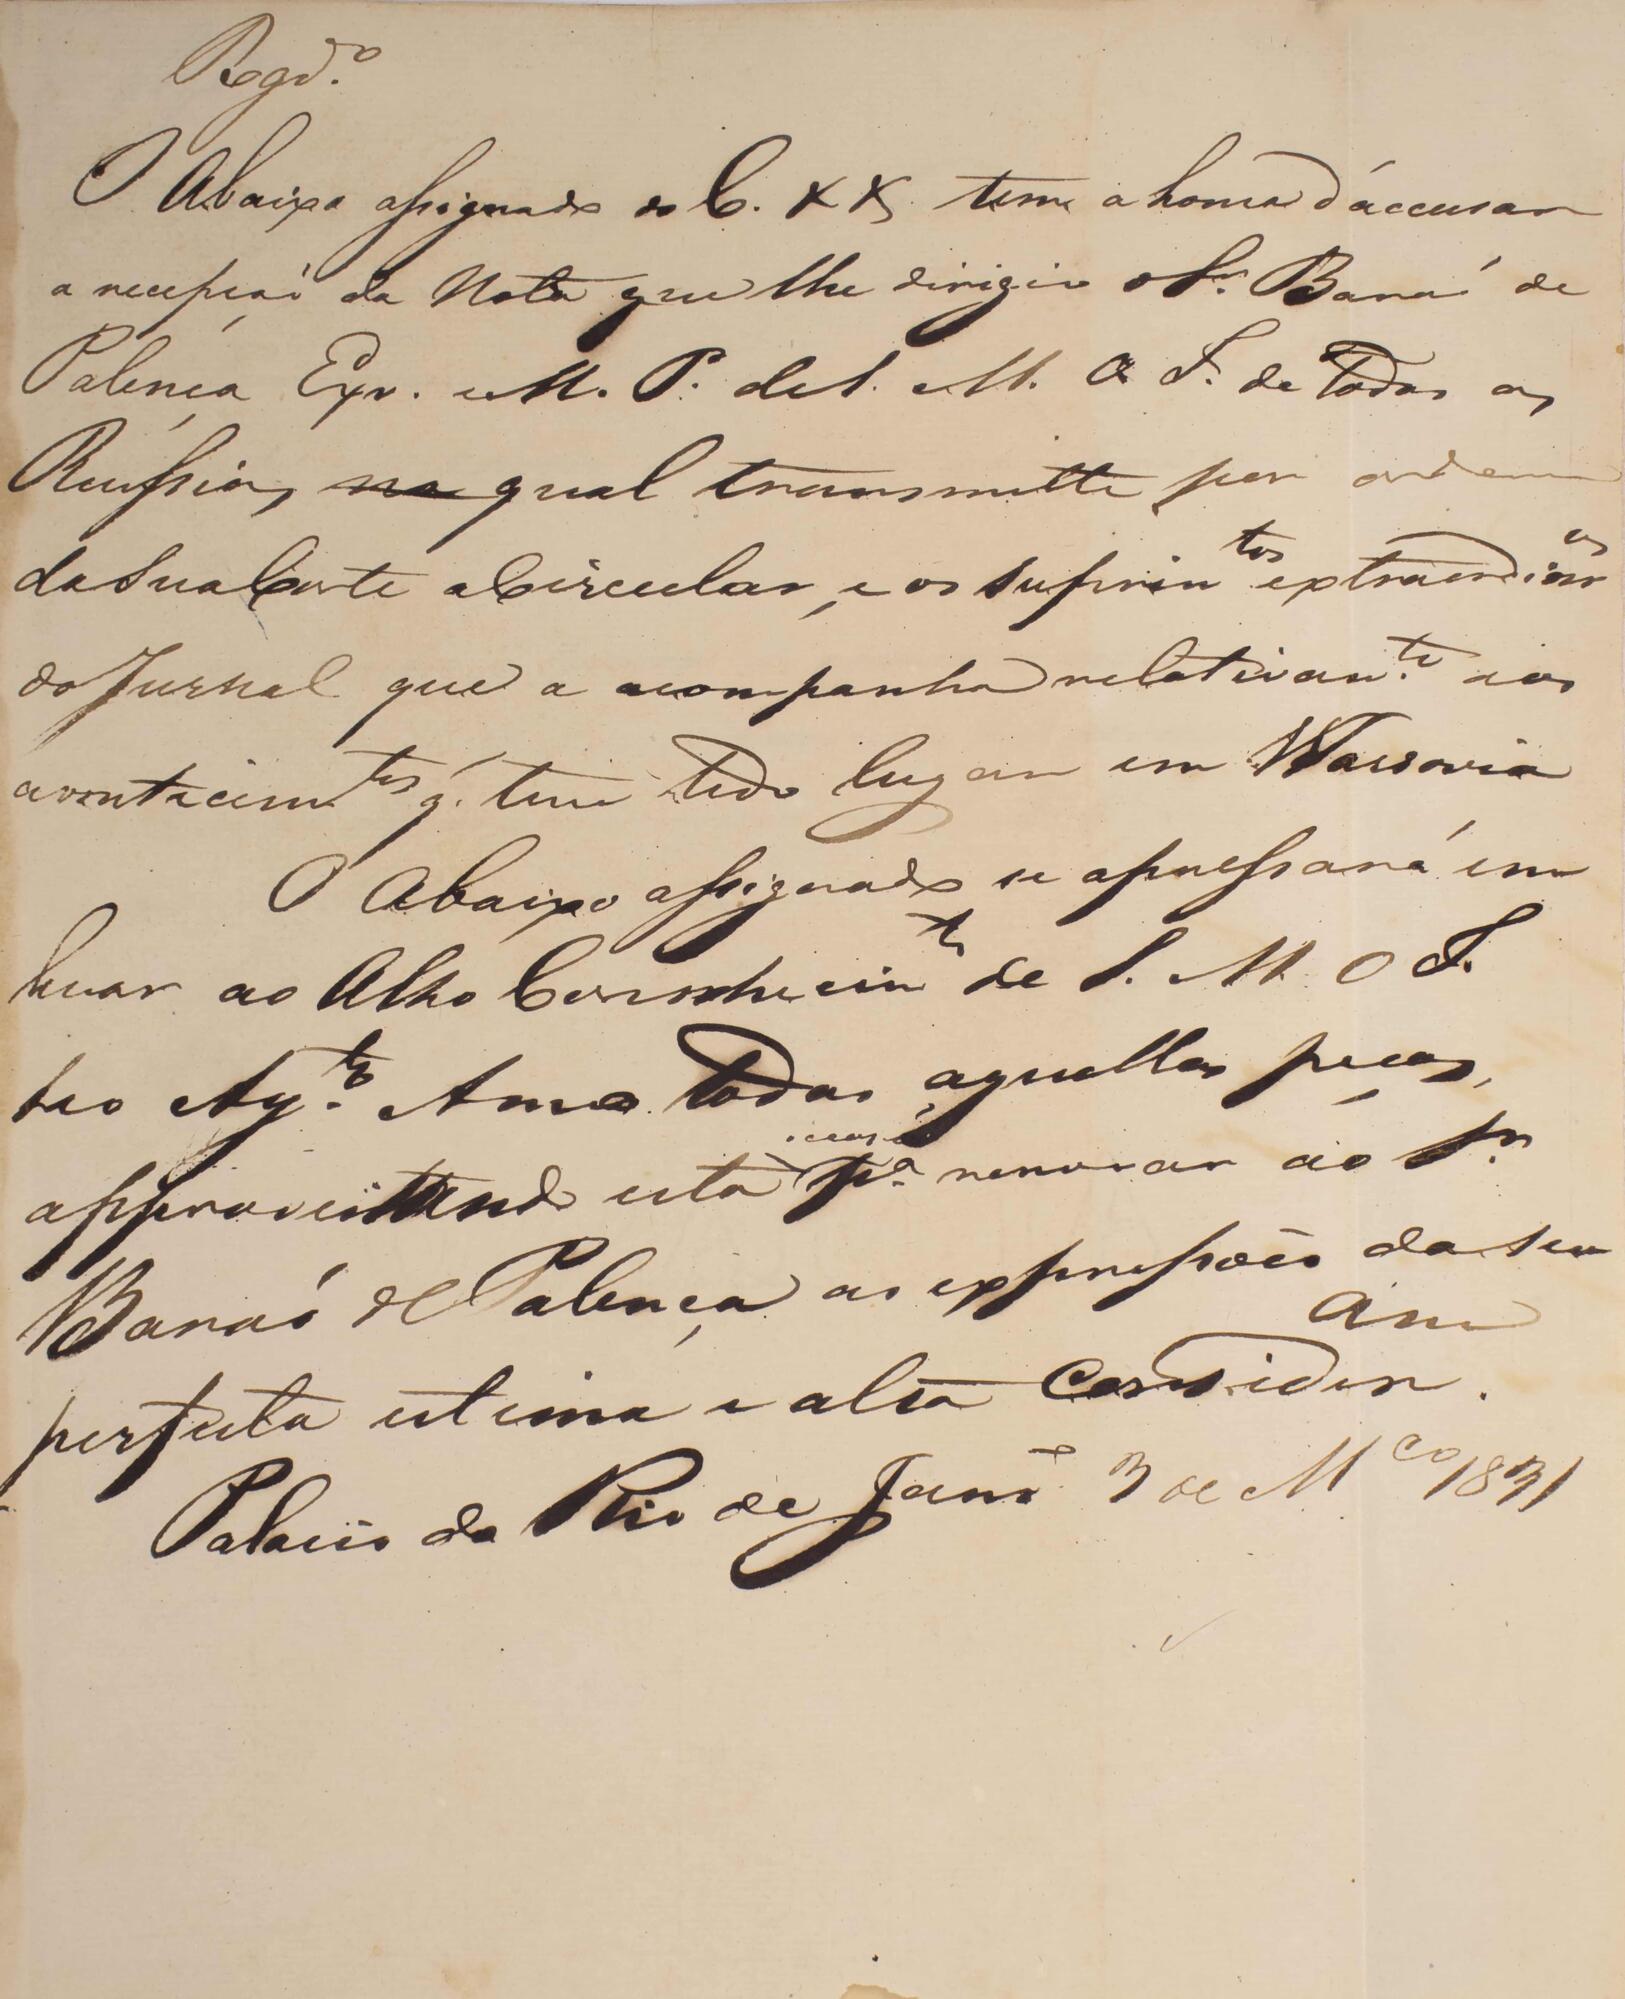 Regd.º
O Abaixo assignado do C. XX. tem a honra d'accusar
a recepçaõ da Nota que lhe dirigio o Sr. Baraó de
Palença Exr. e M. P. de S. M. O I. de Todas as
Russias, na qual transmitte por ordem
da Sua Corte a Circular, e os suprimtos extraordinros
do Jurnal que a acompanha relativamte. aos
aconticimtos q. tem tido lugar em Warsovia
O Abaixo assignado se apressará em
levar ao Alto Conhecimto de S. M. O I.
seo Augto. Amo todas aquellas peças,
approveitando esta occasiaõ pa. renovar ao Sr.
Baraó de Palença as expressoẽs da sua
perfeita estima e alta Consider.am
Palacio do Rio de Janro 3 de Mço 1831